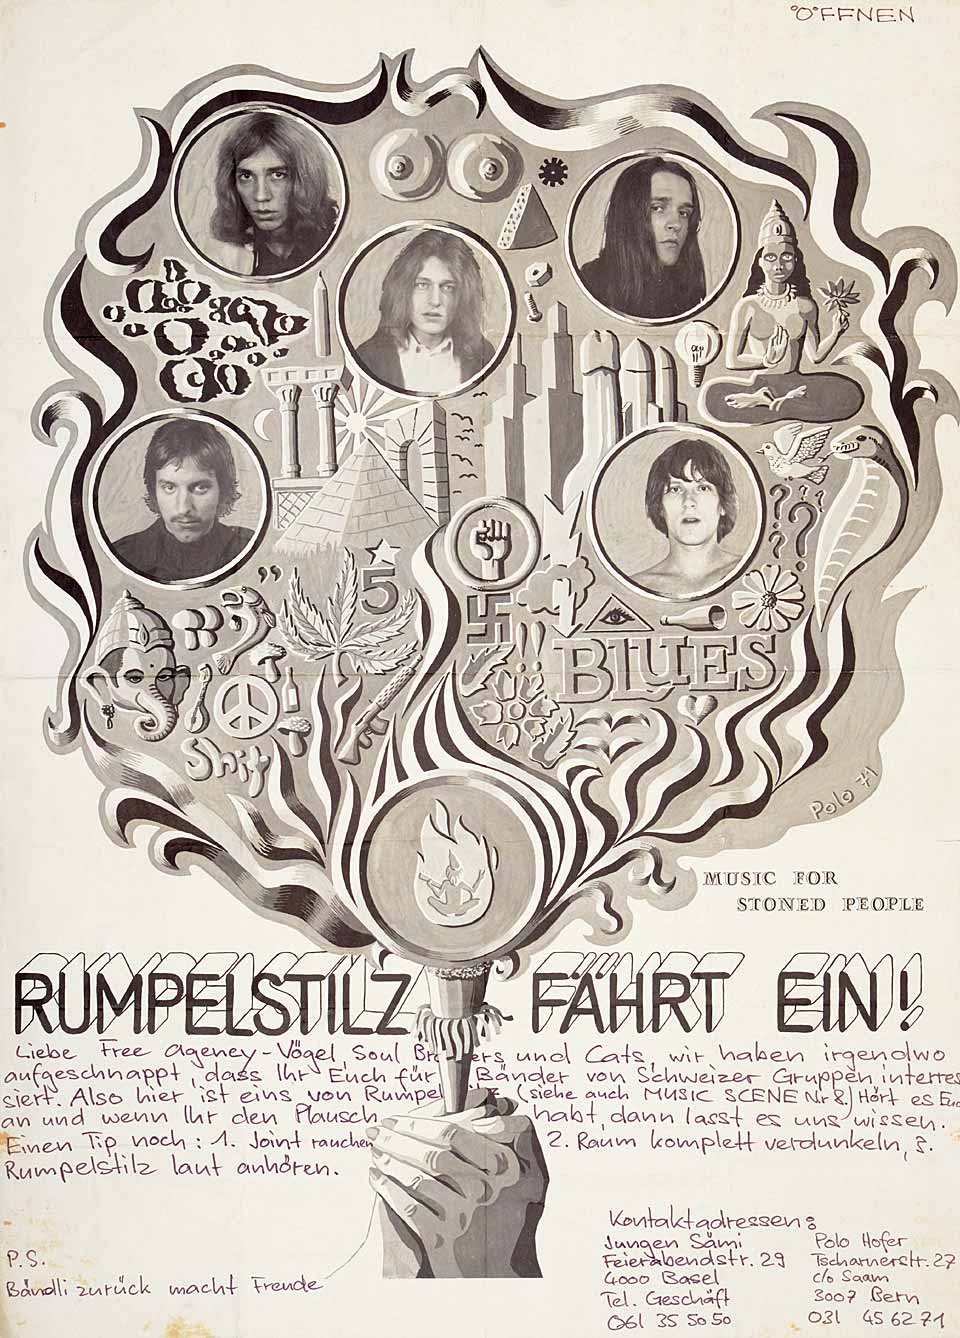 ÖFFNEN
5
Shit
BLUES
Polo 71
MUSIC FOR
STONED PEOPLE
RUMPELSTILZ FÄHRT EIN!
Liebe Free Agency-Vögel, Soul Brothers und Cats, wir haben irgendwo
aufgeschnappt, dass Ihr Euch für Bänder von Schweizer Gruppen interres
siert. Also hier ist eins von Rumpelstilz (siehe auch MUSIC SCENE Nr 8) Hört es Euch
an und wenn Ihr den Plausch habt, dann lasst es uns wissen.
Einen Tip noch: 1. Joint rauchen 2. Raum komplett verdunkeln, 3.
Rumpelstilz laut anhören.
P.S.
Bändli zurück macht Freude
Kontaktadressen:
Jungen Sämi
Feierabendstr. 29
4000 Basel
Tel. Geschäft
061 35 50 50
Polo Hofer
Tscharnerstr. 27
c/o Saam
3007 Bern
031 45 62 71